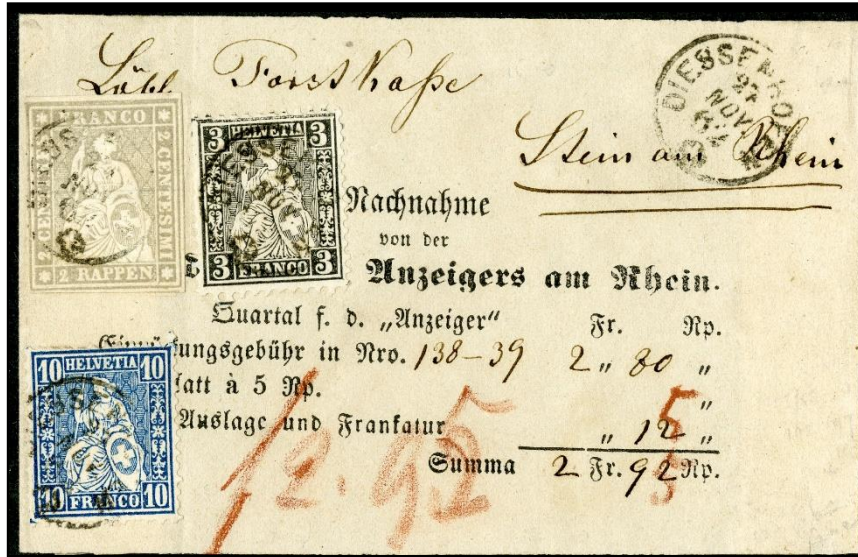 Löbl. Forstkaße
DIESSENHOFEN
27
NOV
62
Stein am Rhein
FRANCO
2 CENTESIMI
2 RAPPEN
3 HELVETIA 3
3 FRANCO 3
Nachnahme
von der
Anzeigers am Rhein.
Quartal f. d. „Anzeiger" Fr. Rp.
ungsgebühr in Nro. 138-39 2 „ 80 „
latt à 5 Rp. „
Auslage und Frankatur „ 12 „
Summa 2 Fr. 92 Rp.
10 HELVETIA 10
10 FRANCO 10